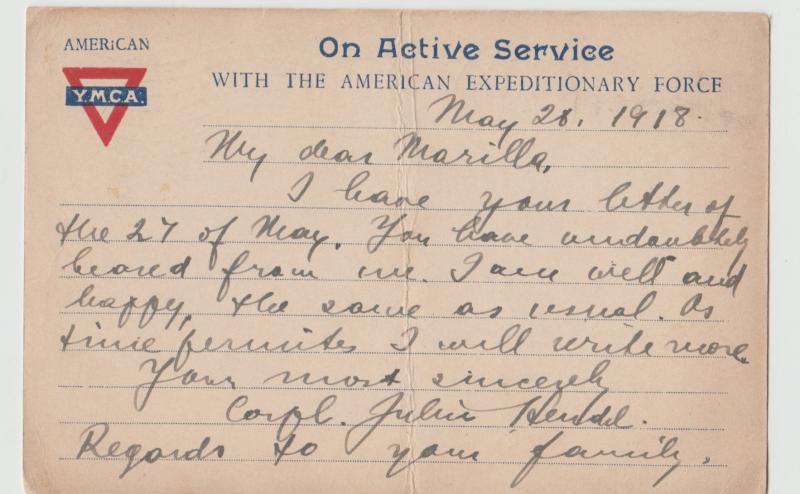 AMERiCAN
Y.M.C.A.
On Active Service
WITH THE AMERICAN EXPEDITIONARY FORCE
May 28, 1918.
My dear Marilla,
I have your letter of
the 27 of May. You have undoubtedly
heared from me. I am well and
happy, the same as usual. As
time permites I will write more.
Your most sincerely
Corpl. Julius Hendel.
Regards to your family.